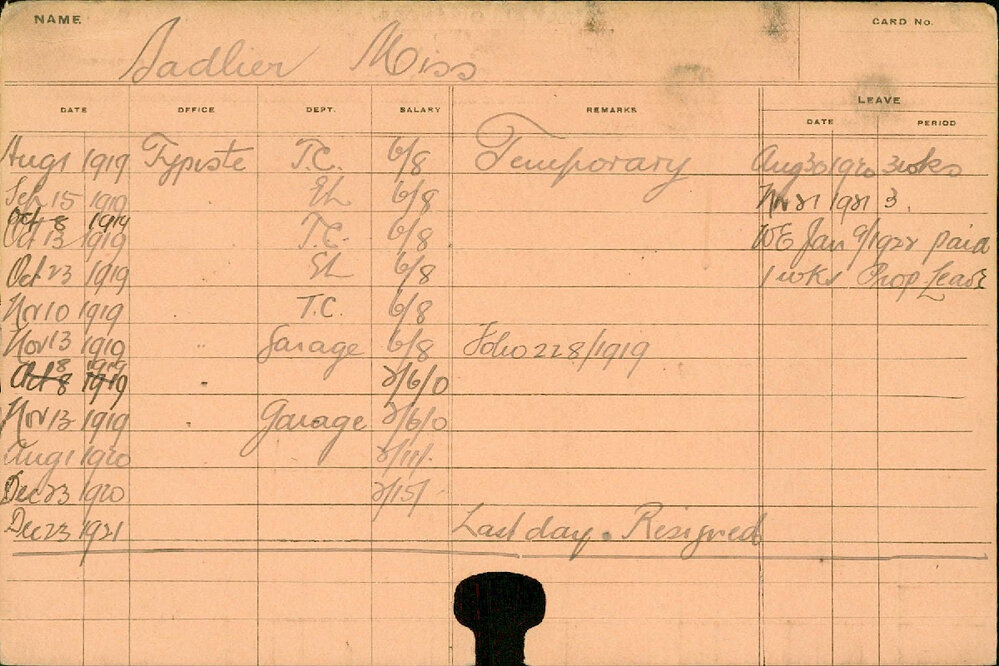 NAME
CARD No.
Sadlier Miss
DATE OFFICE DEPT. SALARY REMARKS LEAVE
DATE PERIOD
Aug 1 1919 Typiste T.C. 6/8 Temporary Aug 30 1920 3 wks
Sep 15 1919 EL 6/8 Nov 21 1921 3
Oct 8 1919
Oct 13 1919 T.C. 6/8 WE Jan 9/1922 paid
Oct 23 1919 EL 6/8 1 wks Prop Leave
Nov 10 1919 T.C. 6/8
Nov 13 1919 Garage 6/8 Folio 228/1919
8 1919
Oct 8 1919 2/6/0
Nov 13 1919 Garage 2/6/0
Aug 1 1920 2/11/-
Dec 23 1920 2/15/-
Dec 23 1921 Last day. Resigned